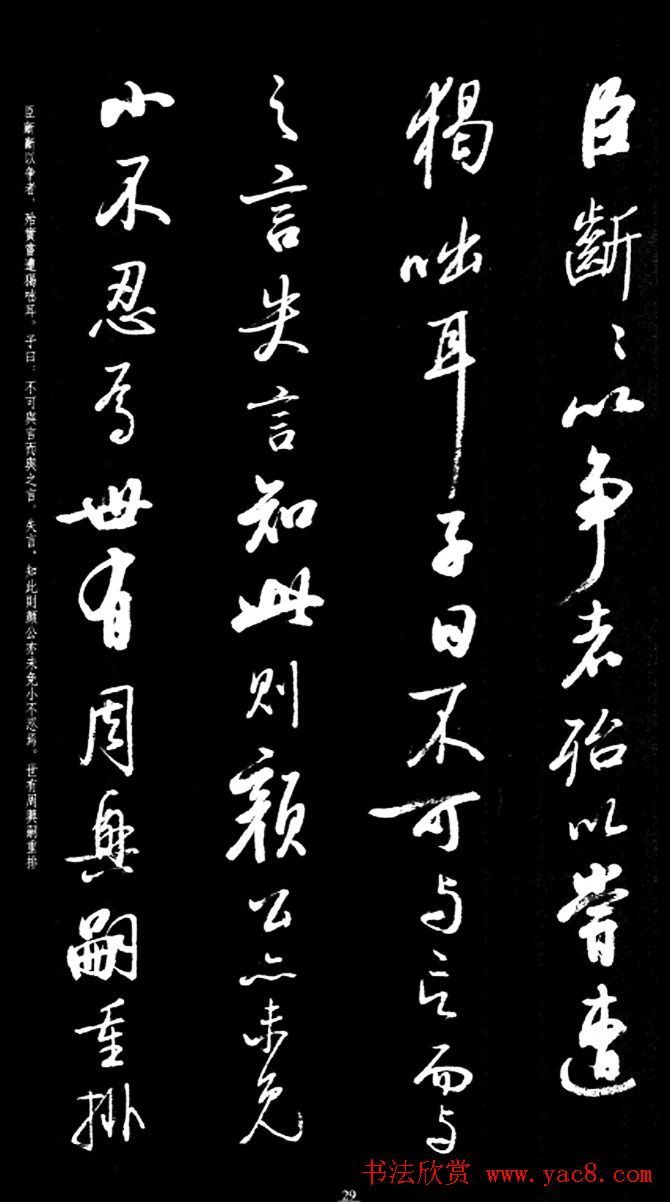 臣齗〻以争者殆以嘗遭
猲咄耳子曰不可与言而与
之言失言知此則顔公亦未免
小不忍焉世有周興嗣重排
臣齗齗以爭者，殆實嘗遭猲咄耳。子曰：不可與言而與之言，失言。知此則顔公亦未免小不忍焉。世有周興嗣重排
29
书法欣赏 www.yac8.com